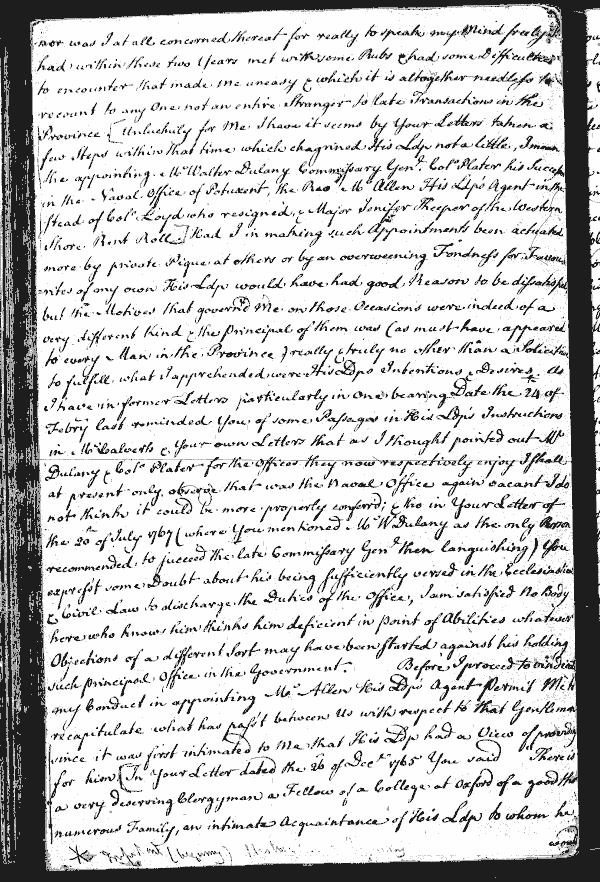 nor was I at all concerned thereat for really to speak my Mind freely I
had within these two Years met with some Rubs & had some Difficulties
to encounter that made me uneasy & which it is altogether needless to
recount to any One not an entire Stranger to late Transactions in the
Province [Unluckily for Me I have it seems by Your Letters taken a
few Steps within that time which chagrined His Ldp not a little, I mean
the appointing Mr Walter Dulany Commissary Genl. Colo Plater his Succesr
in the Naval Office of Patuxent, the Revd Mr Allen His Ldps Agent in the
stead of Colo Loyd who resigned, & Major Jenifer Keeper of the Western
Shore Rent Roll] Had I in making such Appointments been actuated
more by private Pique at others or by an overweening Fondness for Favou-
rites of my own His Ldp would have had good Reason to be dissatisfied
but the Motives that govern'd Me on those Occasions were indeed of a
very different kind & the principal of them was (as must have appeared
to every Man in the Province) really & truly no other than a Solicitude
to fulfill what I apprehended were His Ldps Intentions & Desires. As
I have in former Letters particularly in One bearing Date the 24th of
Febry last reminded You of some Passages in His Ldps Instructions
in Mr Calverts & Your own Letters that as I thought pointed out Mr
Dulany & Colo Plater for the Offices they now respectively enjoy I shall
at present only observe that was the Naval Office again vacant I do
not think it could be more properly conferrd; & tho in Your Letter of
the 20th of July 1767 (where You mentioned Mr W. Dulany as the only Person
recommended to succeed the late Commissary Genl then languishing) You
exprest some Doubt about his being sufficiently versed in the Ecclesiastica
& Civil Law to discharge the Duties of the Office, I am satisfied No Body
here who knows him thinks him deficient in point of Abilities whatever
Objections of a different Sort may have been started against his holding
such principal Office in the Government. Before I proceed to vindicate
my Conduct in appointing Mr Allen His Ldps Agent Permit Me to
recapitulate what has pass't between Us with respect to that Gentleman
since it was first intimated to Me that His Ldp had a View of providing
for him [In Your Letter dated the 26 of Decr 1765 You said There is
a very deserving Clergyman a Fellow of a College at Oxford of a good tho
numerous Family, an intimate Acquaintance of His Ldp to whom he
would